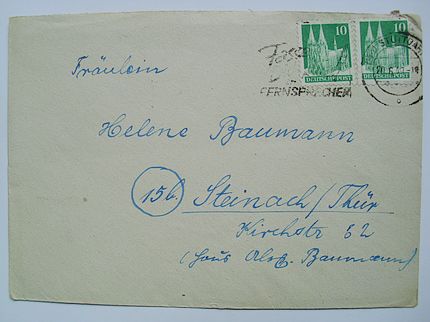 10 10
DEUTSCHE POST DEUTSCHE POST
FERNSPRECHEN
Fräulein
Helene Baumann
15b Steinach/Thür
Kirchstr 52
(Haus Baumann)